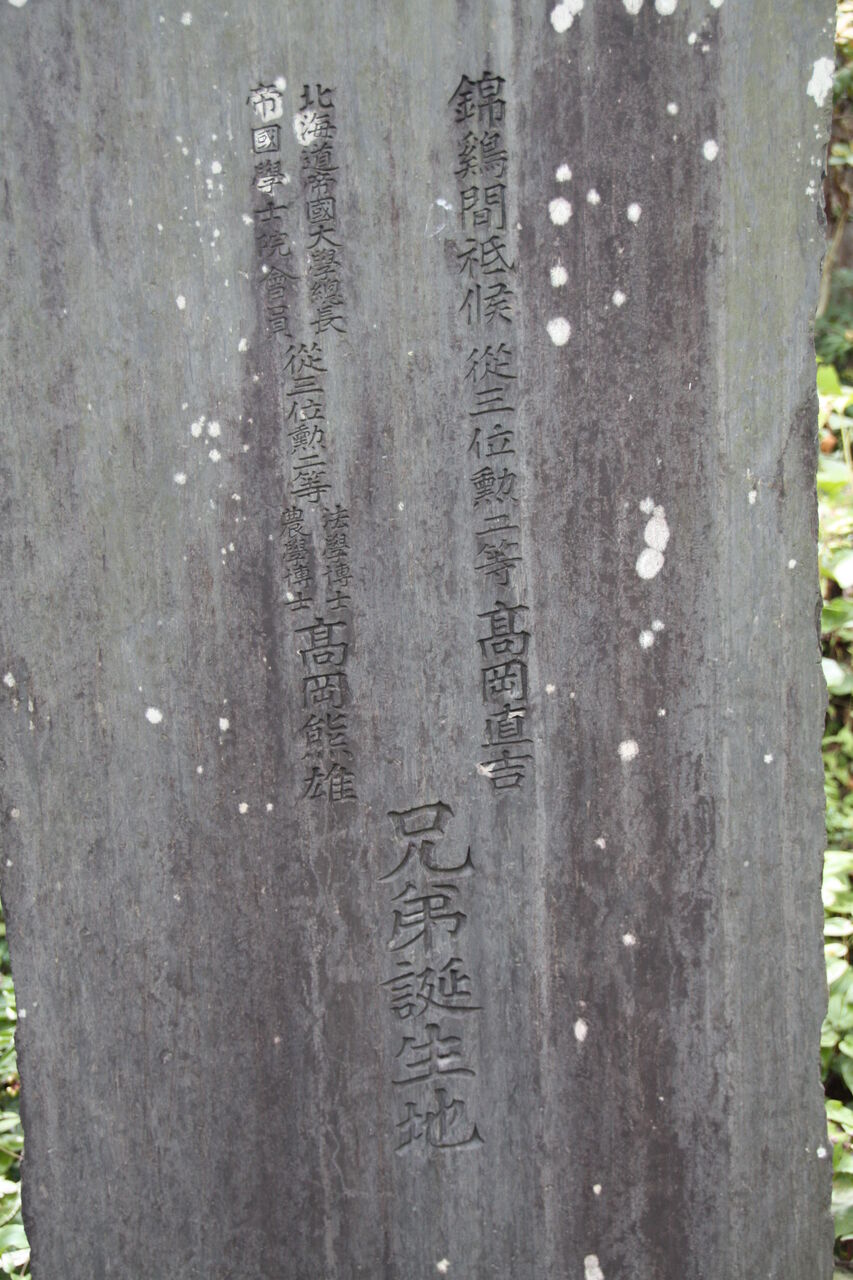 錦鷄間祗候從三位勲二等髙岡直吉
北海道帝國大學總長
帝國學士院會員
從三位勲二等
法學博士
農學博士
髙岡熊雄
兄弟誕生地